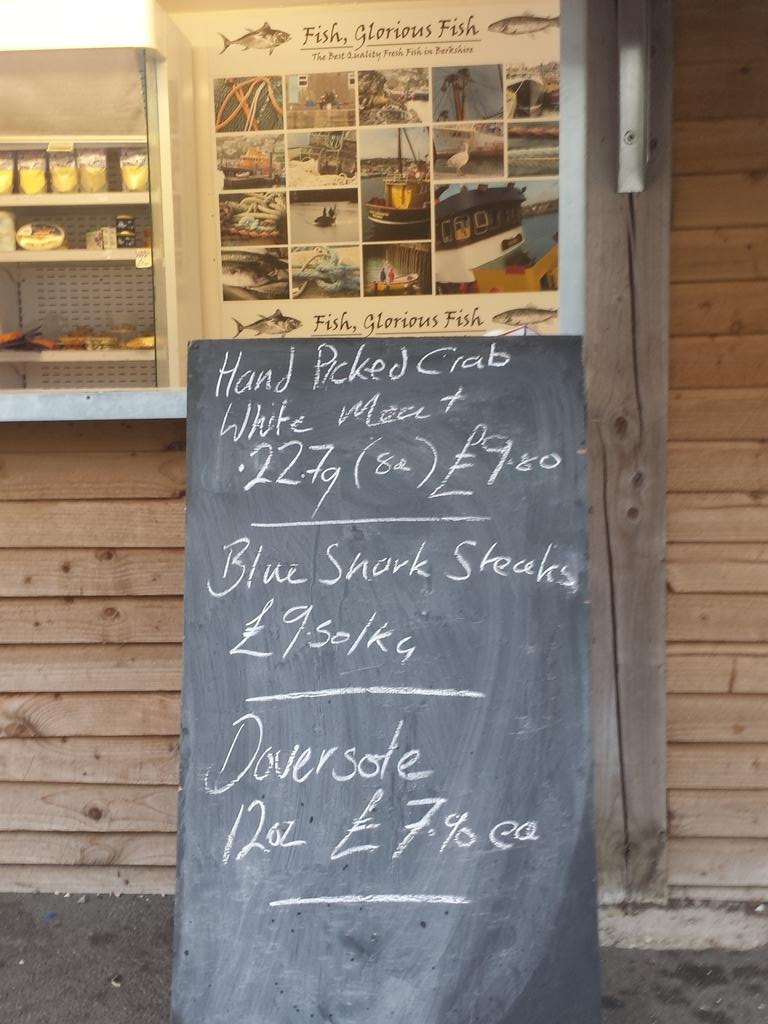 Fish, Glorious Fish
The Best Quality Fresh Fish in Berkshire
Fish, Glorious Fish
Hand Picked Crab
White Meat
.227g (8oz) £9.80
Blue Shark Steaks
£9.50/kg
Doversole
12oz £7.90 ea